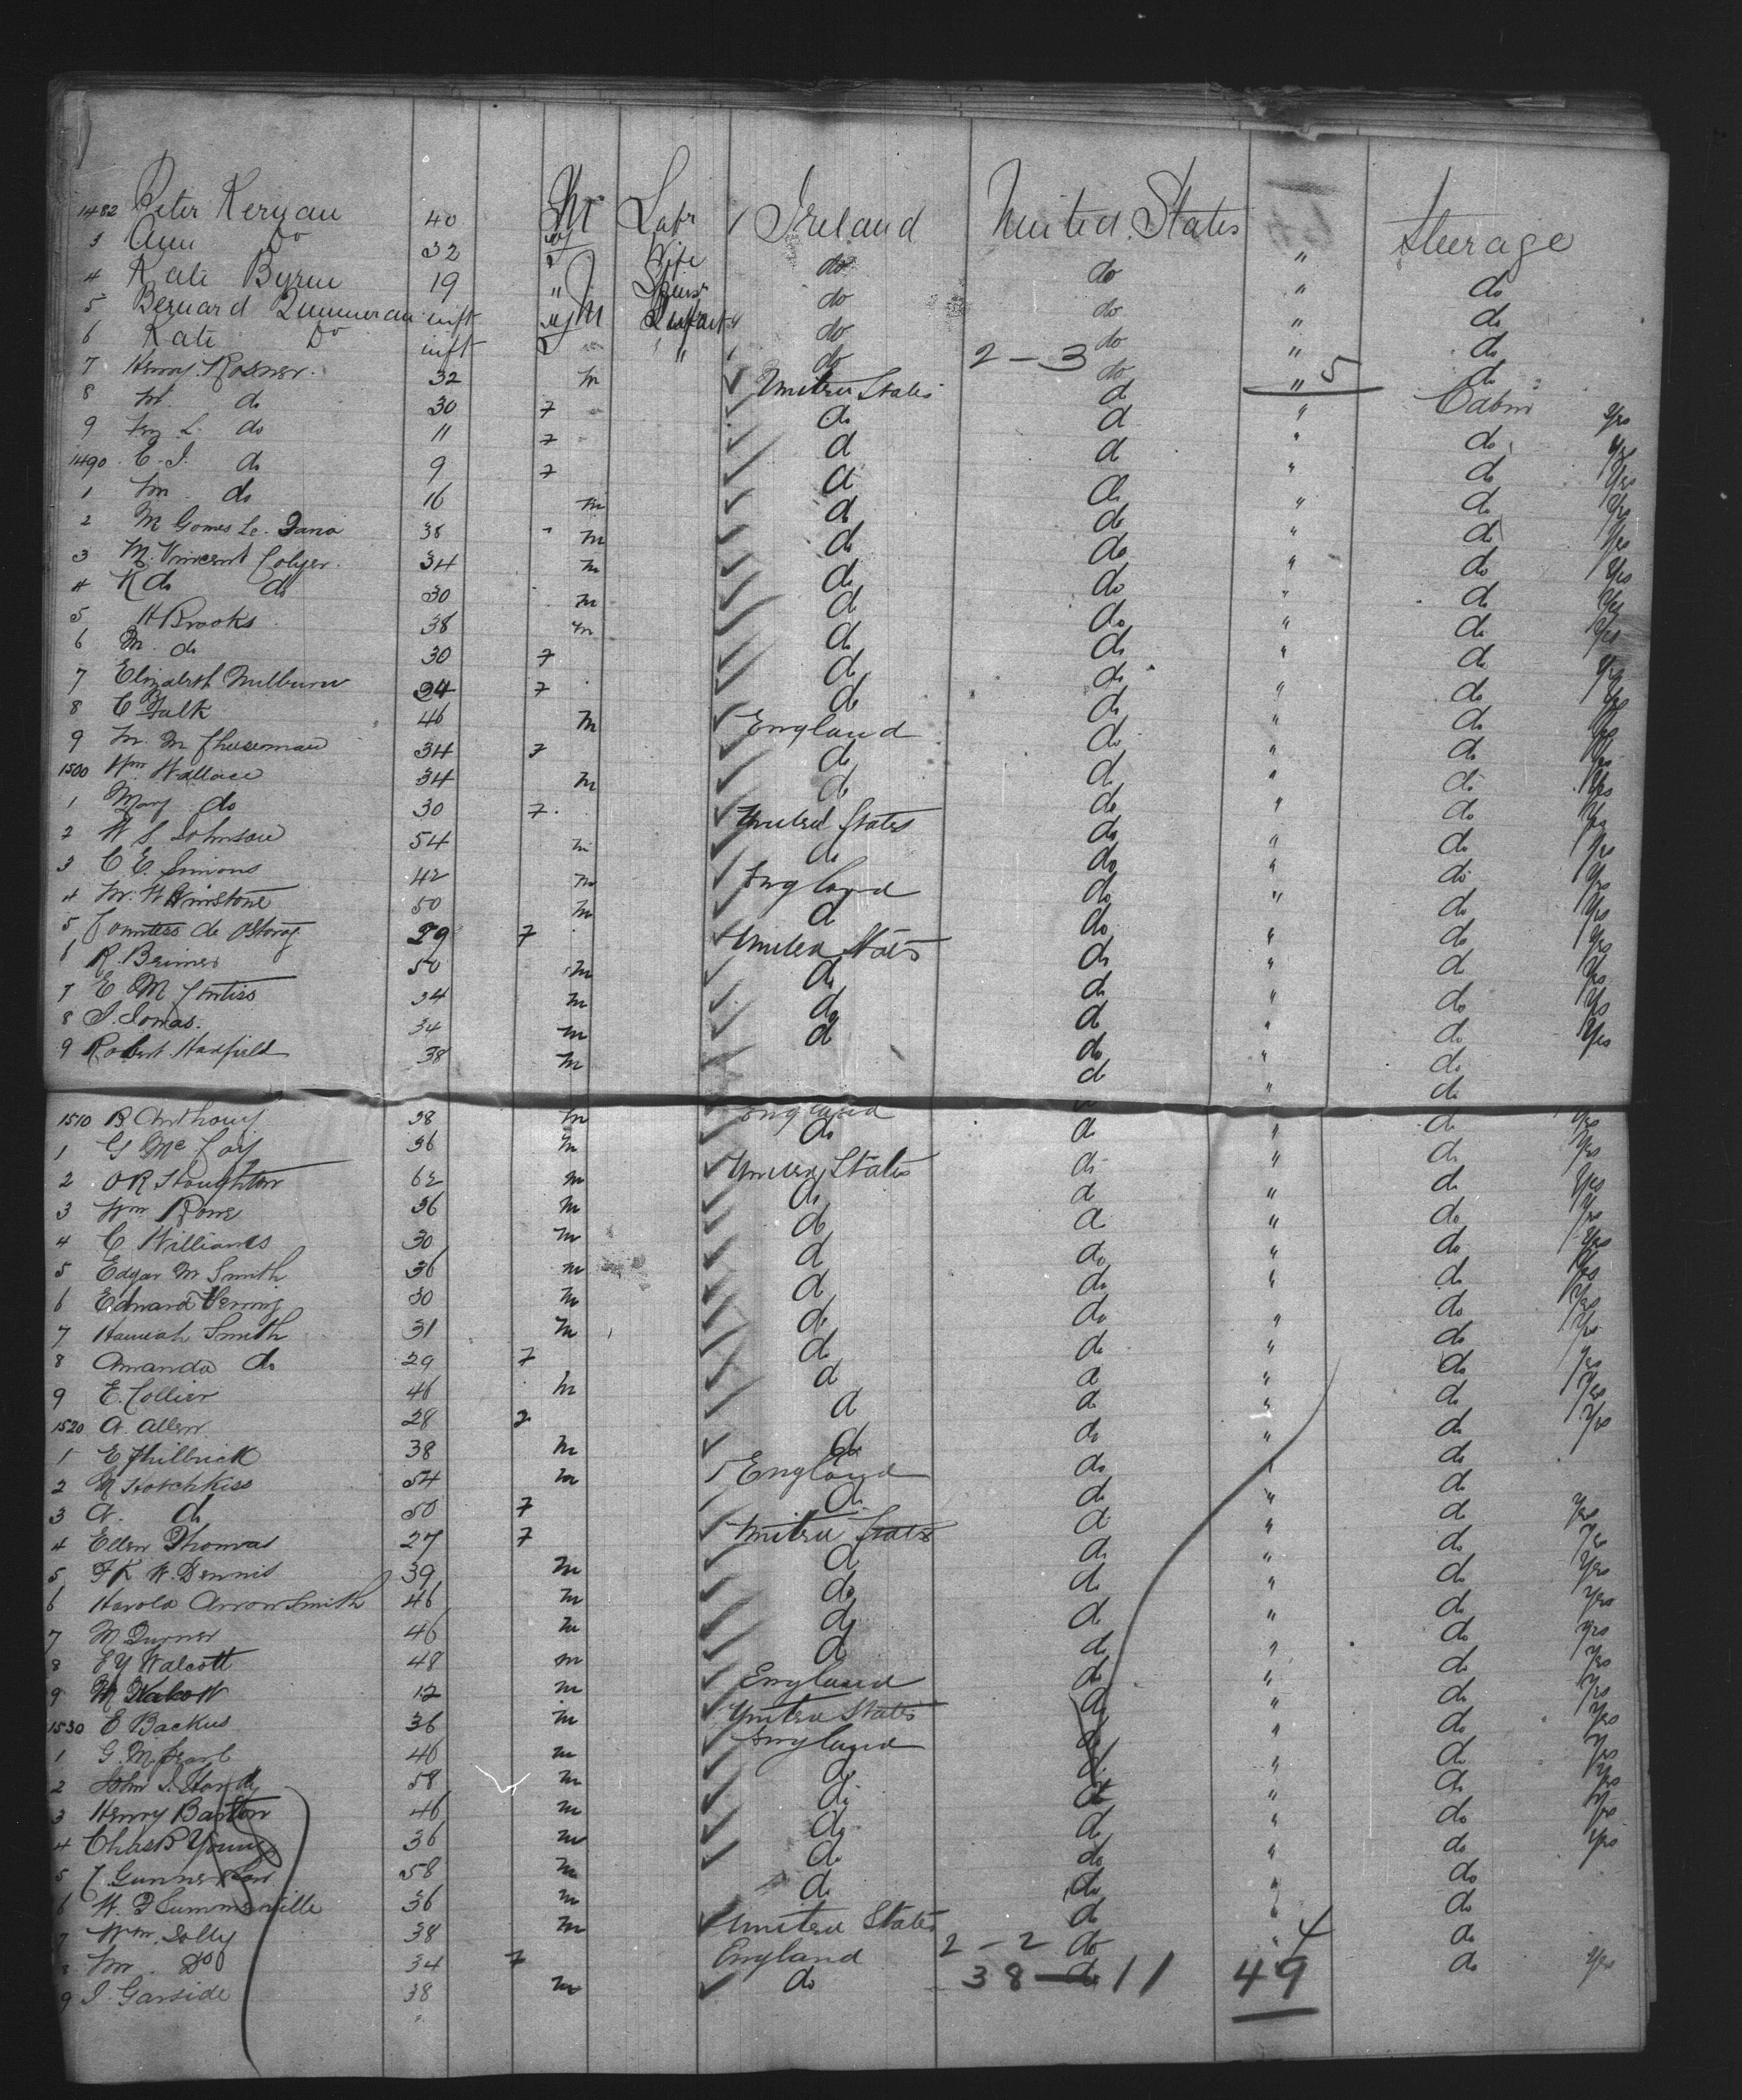 1482 Peter Kernan 40 M Labr Ireland United States Steerage
3 Ann Do 32 Wife do do " do
4 Kate Byrne 19 " Spinsr do do " do
5 Bernard inft M Infant do do " do
6 Kate Do inft " do 2 - 3 do " 5 do
7 Henry Rosener 32 m United States do " Cabin Yes
8 M. do 30 7 do do " do Yes
9 L. do 11 7 do do " do Yes
1490 C. I. do 9 7 do do " do Yes
1 M do 16 m do do " do Yes
2 M Gomes 38 m do do " do Yes
3 M. Vincent Colyer 34 m do do " do Yes
4 R do do 30 m do do " do Yes
5 H Brooks 38 m do do " do Yes
6 M. do 30 7 do do " do Yes
7 Elizabeth Milburn 34 7 do do " do Yes
8 C Falk 46 m England do " do Yes
9 M. M Cheeseman 34 7 do do " do Yes
1500 Wm Wallace 34 m do do " do Yes
1 Mary do 30 7 United States do " do Yes
2 W S Johnson 54 m do do " do Yes
3 C. E. Simons 42 m England do " do Yes
4 Mr. W Winstone 50 m do do " do Yes
5 Countess de 29 7 United States do " do Yes
6 R. Beimer 50 m do do " do Yes
7 E M 34 m do do " do Yes
8 J. Jonas. 34 m do do " do
9 Robert Hadfield 38 m do " do
1510 B Anthony 38 m England do " do Yes
1 G McCoy 36 m do do " do Yes
2 O R Stoughton 62 m United States do " do Yes
3 Wm Rowe 36 m do do " do Yes
4 C Williams 30 m do do " do Yes
5 Edgar M Smith 36 m do do " do Yes
6 Edward Verring 30 m do do " do Yes
7 Hamiah Smith 31 m do do " do Yes
8 Amanda do 29 7 do do " do Yes
9 E. Collier 46 m do do " do Yes
1520 A. Allen 28 7 do do " do Yes
1 E Philbrick 38 m do do " do
2 M Hotchkiss 54 m England do " do
3 A. do 50 7 do do " do Yes
4 Ellen Thomas 27 7 United States do " do Yes
5 F K W. Dennis 39 m do do " do Yes
6 Harold Arrowsmith 46 m do do " do Yes
7 M Turner 46 m do do " do Yes
8 E Y Walcott 48 m do do " do Yes
9 M Walcott 12 m England do " do Yes
1530 E Backus 36 m United States do " do Yes
1 G. M. Searl 46 m England do " do Yes
2 John S. Hardy 58 m do do " do Yes
3 Henry Barton 46 m do do " do Yes
4 Chas B Young 36 m do do " do Yes
5 J Gunnerson 58 m do do " do
6 W. F Summerville 36 m do do " do
7 Wm. Jolly 38 m United States 2 - 2 do " 4 do
8 Mr. Do 34 7 England 38 - do 11 49 do Yes
9 J. Garside 38 m do